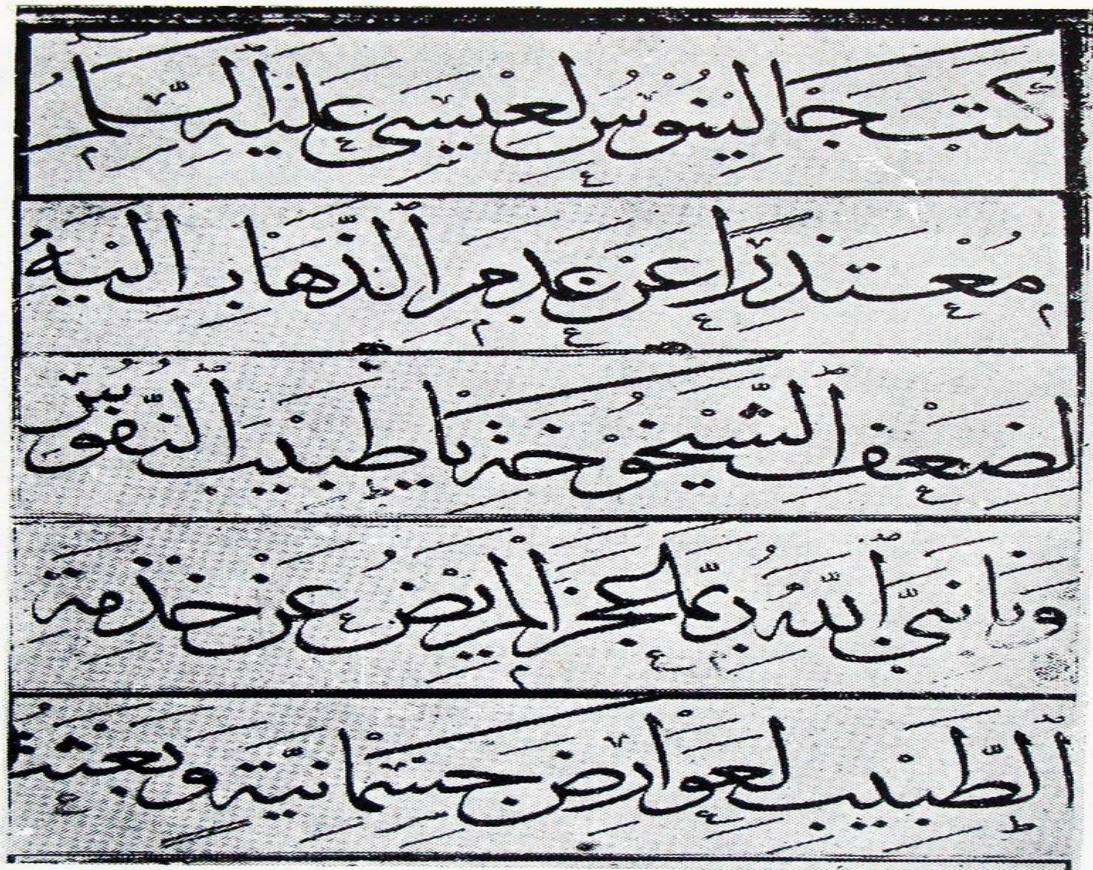 كَتَبَ جَالِينُوسُ لِعِيسَى عَلَيْهِ السَّلَامُ
مُعْتَذِرًا عَنْ عَدَمِ الذَّهَابِ إِلَيْهِ
لِضَعْفِ الشَّيْخُوخَةِ يَا طَبِيبَ النُّفُوسِ
وَيَا نَبِيَّ اللهِ رُبَّمَا عَجَزَ الْمَرِيضُ عَنْ خِدْمَةِ
الطَّبِيبِ لِعَوَارِضَ جِسْمَانِيَّةٍ وَبَعَثْتُ